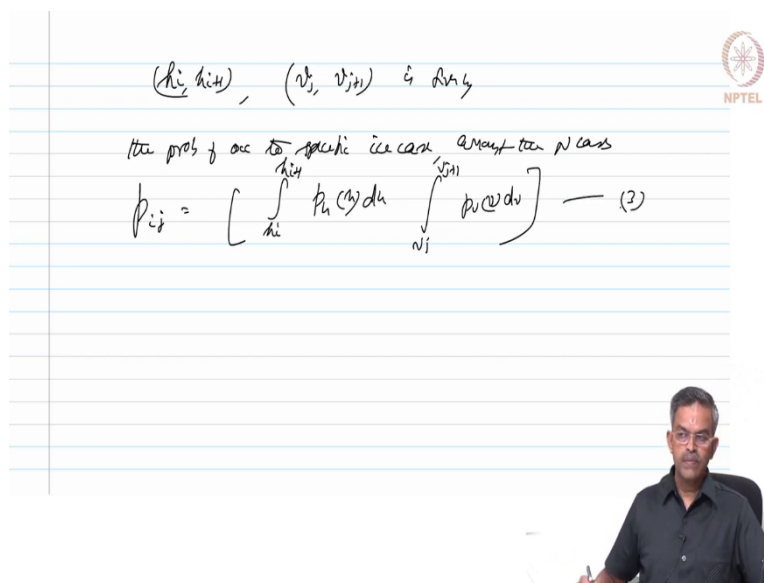 (hi, hi+1), (vj, vj+1) is
NPTEL
the prob of occ to specific ice case, amongst the N cases
pij = [ ∫_{hi}^{hi+1} ph(h) dh ∫_{vj}^{vj+1} pv(v) dv ] — (3)